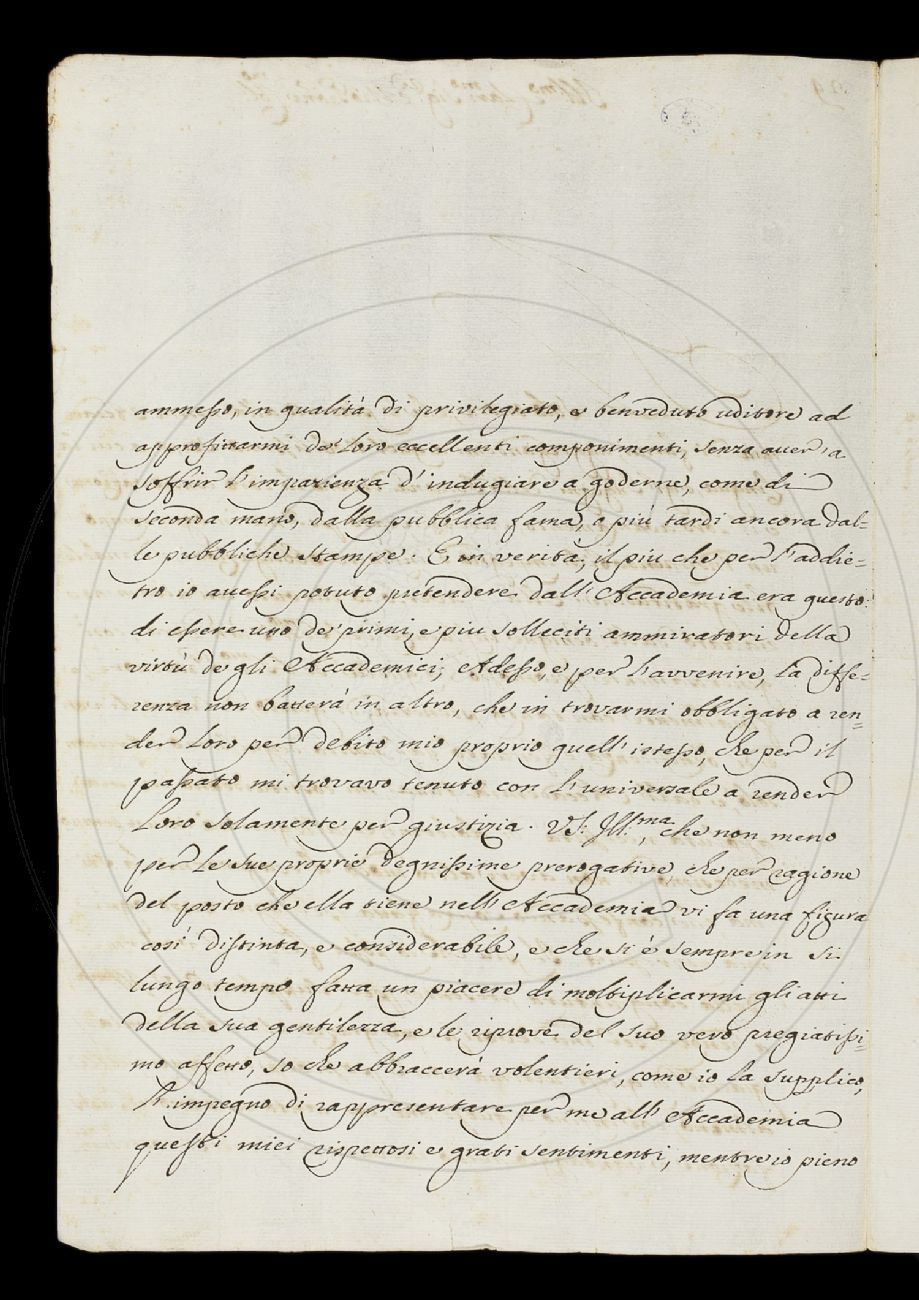 ammesso, in qualità di privilegiato, e benveduto uditore ad
approfittarmi de' Loro eccellenti componimenti, senza aver' a
soffrir l'impazienza d'indugiare a goderne, come di
seconda mano, dalla pubblica fama, o più tardi ancora dal=
le pubbliche stampe. E in verità, il più che per l'addie=
tro io avessi potuto pretendere dall'Accademia era questo:
di essere uno de' primi, e più solleciti ammiratori della
virtù de gli Accademici; Adesso, e per l'avvenire, la diffe=
renza non batterà in altro, che in trovarmi obbligato a ren=
der Loro per debito mio proprio quell'istesso, che per il
passato mi trovavo tenuto con l'universale a render
Loro solamente per giustizia. VS. Ill:ma, che non meno
per le sue proprie degnissime prerogative, che per ragione
del posto che ella tiene nell'Accademia vi fa una figura
così distinta, e considerabile, e che si è sempre in sì
lungo tempo fatta un piacere di moltiplicarmi gli atti
della sua gentilezza, e le riprove del suo vero pregiatissi=
mo affetto, so che abbraccerà volentieri, come io la supplico,
l'impegno di rappresentare per me all'Accademia
questi miei rispettosi e grati sentimenti, mentre io pieno